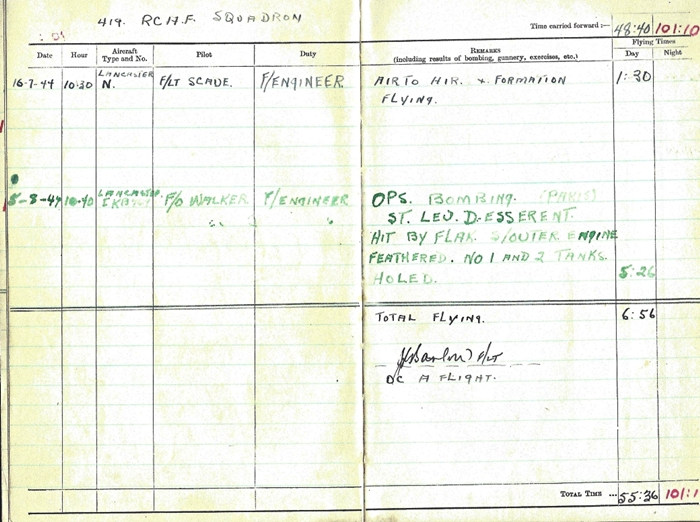 419. RCAF. SQUADRON
Time carried forward:— 48:40 101:10
Date Hour Aircraft Type and No. Pilot Duty REMARKS (including results of bombing, gunnery, exercises, etc.) Flying Times Day Night
16-7-44 10:30 LANCASTER N. F/LT SCADE. F/ENGINEER AIR TO AIR. & FORMATION 1:30
FLYING.
5-8-44 10-40 LANCASTER F/O WALKER F/ENGINEER OPS. BOMBING. (PARIS)
ST. LEU. D-ESSERENT.
HIT BY FLAK. S/OUTER ENGINE
FEATHERED. NO 1 AND 2 TANKS
HOLED. 5:26
TOTAL FLYING. 6:56
F/LT
OC A FLIGHT.
TOTAL TIME ... 55:36 101:1